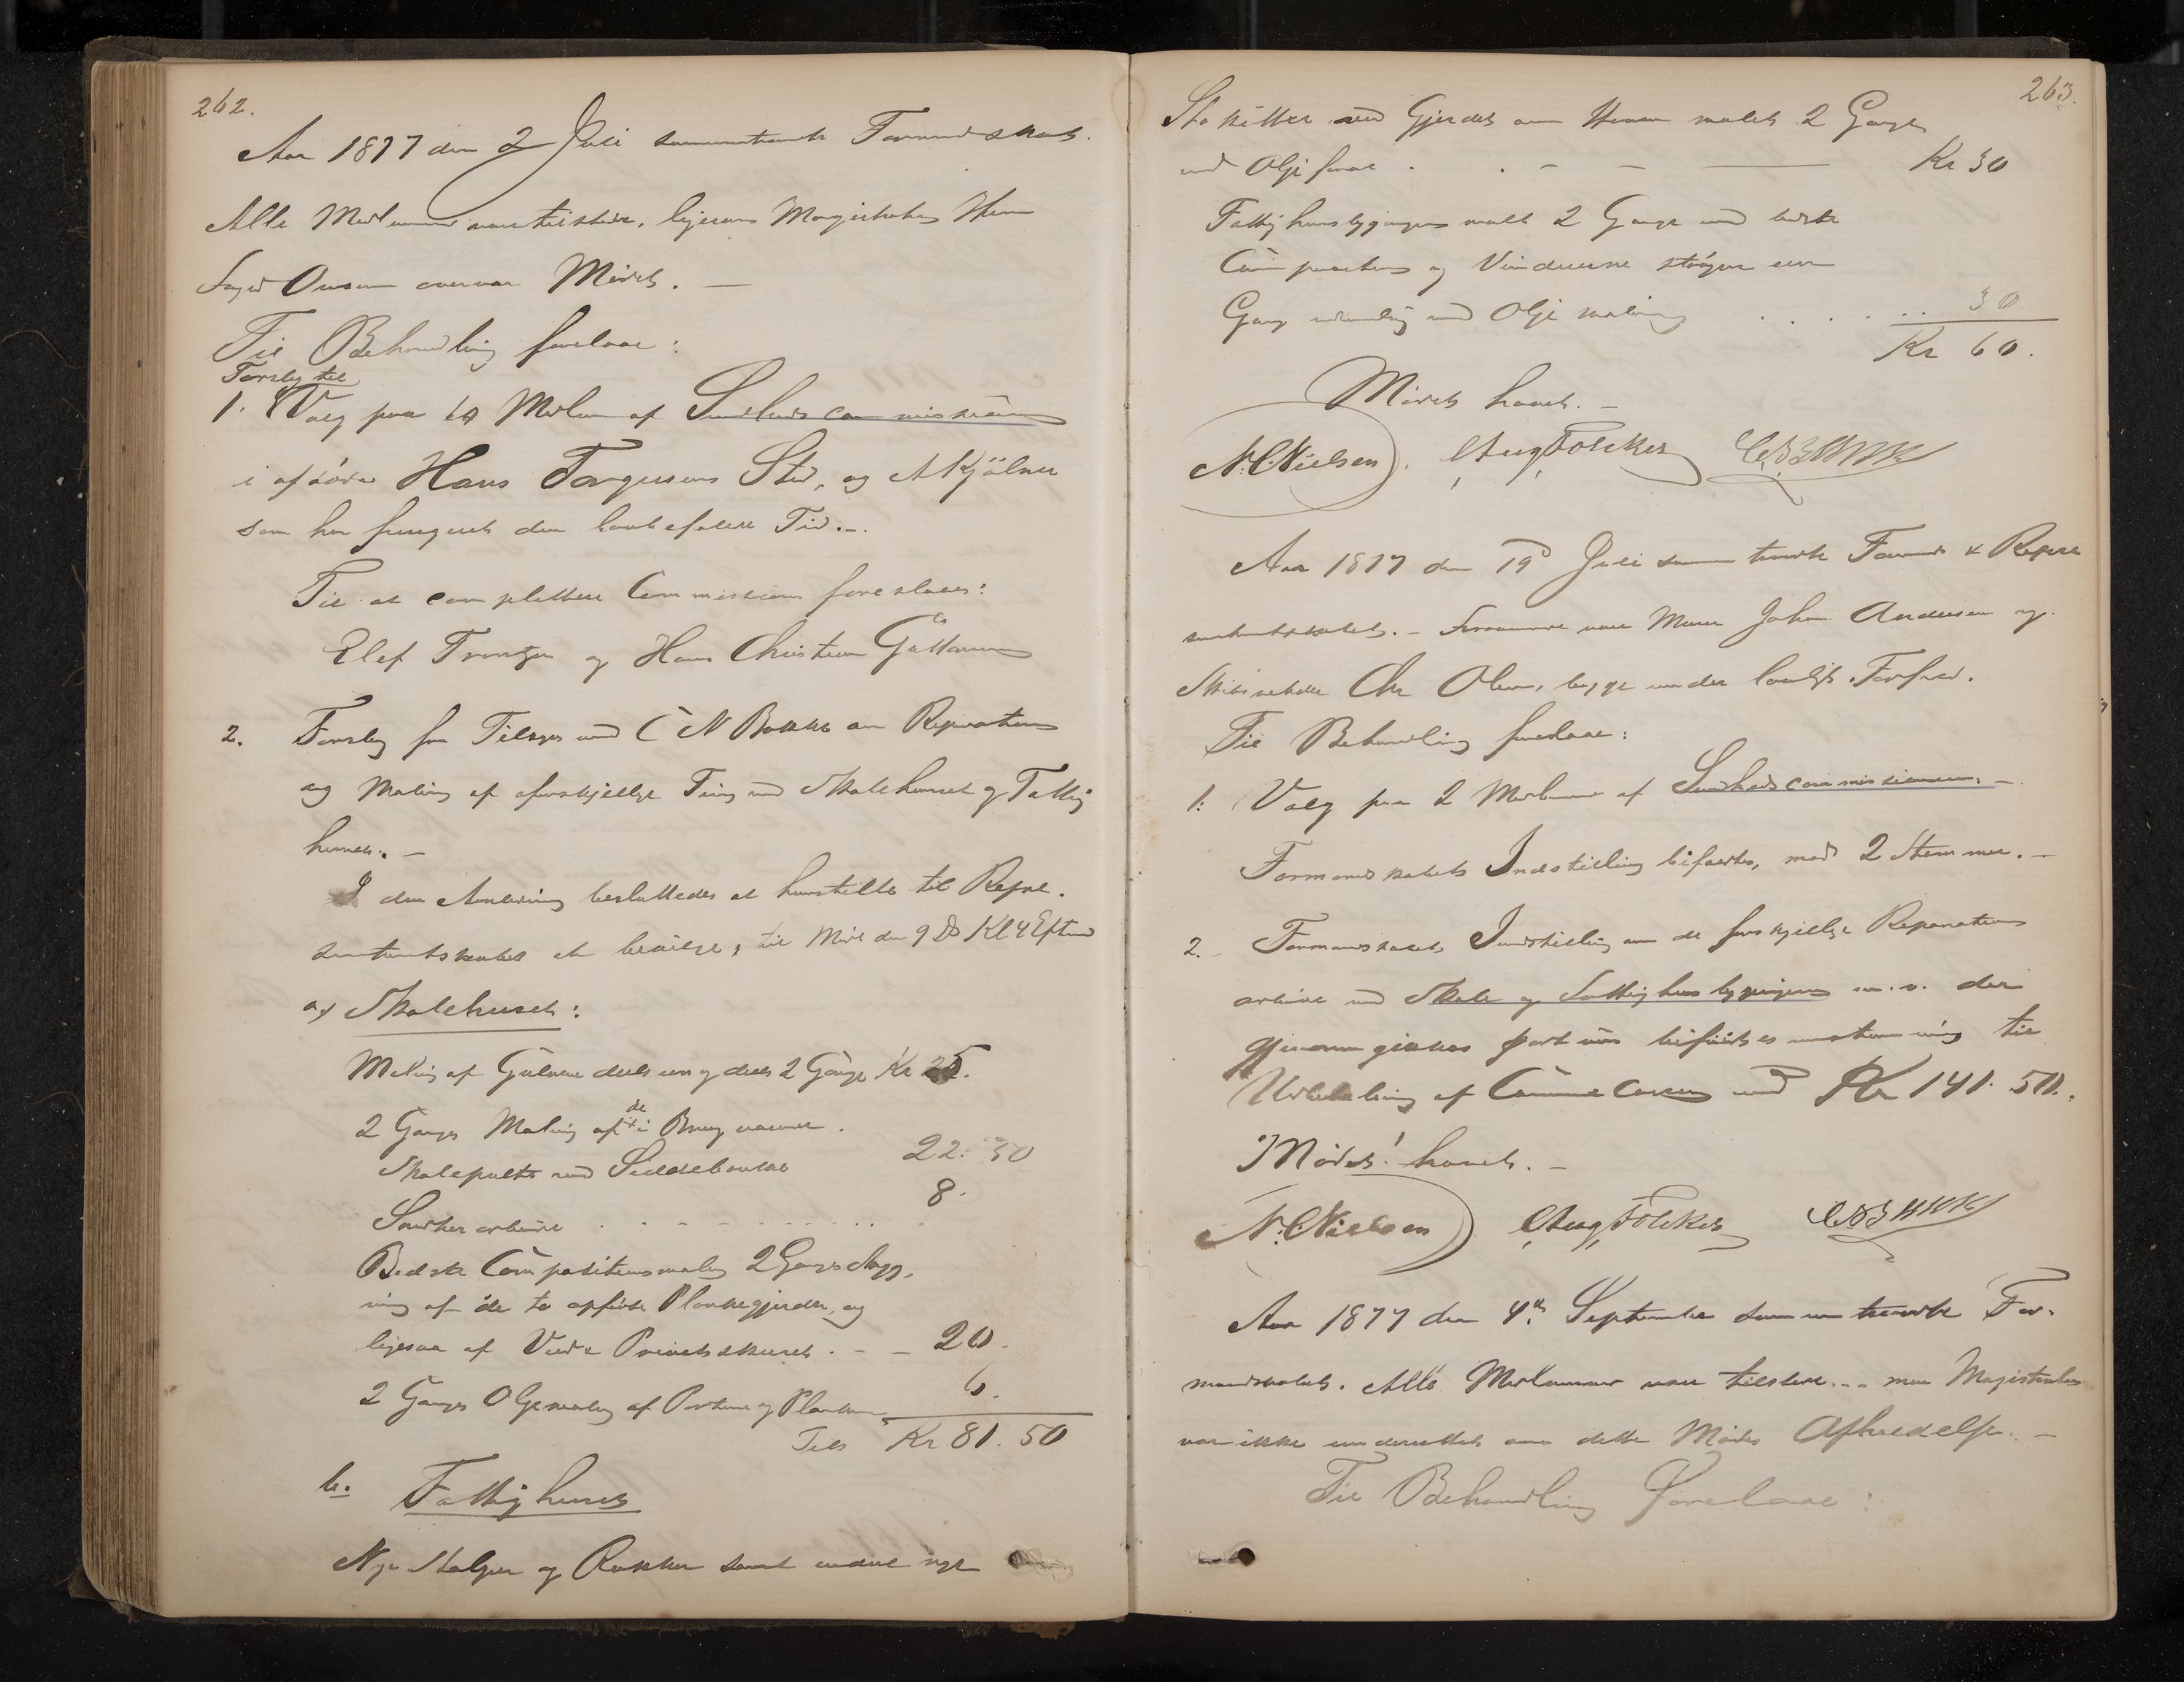 262.
Aar 1877 den 2 Juli sammentraadte Formandskabet.
Alle Medlemmer vare tilstede, ligesom Magistraten Herr
Foged overvar Mödet. —
Til Behandling forelaae:
Forslag til
1. Valg paa to Medlem af Sundhedscommissionen
i afdöde Hans Torgersens Sted, og A Kjölner
som har fungeret den lovbefalede Tid. —
Til at complettere Commissionen foreslaaes:
Elef Trontzen og Hans Christian Guttormsen
2. Forslag fra Tilsynsmd C N Bakke om Reparation
og Maling af forskjellige Ting ved Skolehuset og Fattig
huset. —
I den Anledning besluttedes at henstille til Repræ-
sentantskabet at bevilge, til Möde den 9 Ds Kl 4 Efterm
a) Skolehuset:
Maling af Gulvene deels en og deels 2 Gange Kr 25.
2 Gange Maling af de i Brug værende
Skolepulte med Siddebænke 22. 50
Snedker arbeide . . . . . . 8.
Bedste Compositionsmaling 2 Ganges Stryg-
ning af de to opförte Plankegjerder, og
ligesaa af Privetskuret. - - 20.
2 Ganges Oljemaling af Portene og Plankerne 6.
Tils Kr 81. 50
b. Fattighuset
Nye Stolper og Rækker samt endeel nye
263.
Stakitter ved Gjerdet om Haven malet 2 Gange
med Oljefarve . . - - — Kr 30
Fattighusbygningen malt 2 Gange med bedste
Composition og Vinduerne strögne een
Gang udvendig med Oljemaling . . . . . . 30
Kr 60.
Mödet hævet. —
N. C. Nielsen. Aug Fölcker
Aar 1877 den 19d Juli sammentraadte Formands & Repræ
sentantskabet. — Fraværende vare Murer Johan Andersen og
Skibsreder Chr Olsen, begge under lovligt Forfald.
Til Behandling forelaae:
1: Valg paa 2 Medlemmer af Sundhedscommissionen. —
Formandskabets Indstilling bifaldtes, mod 2 Stemmer. —
2. - Formandskabets Indstilling om de forskjellige Reparations
arbeide ved Skole og Fattighusbygningen m. v. der
gjennemgikkes Post til
Udbetaling af Communecassen med Kr 141. 50.
Mödet hævet. —
N. C. Nielsen Aug Fölcker
Aar 1877 den 4de September sammentraadte For-
mandskabet. Alle Medlemmer vare tilstede. — men Magistraten
var ikke underrettet om dette Mödes Afholdelse. —
Til Behandling Forelaae: